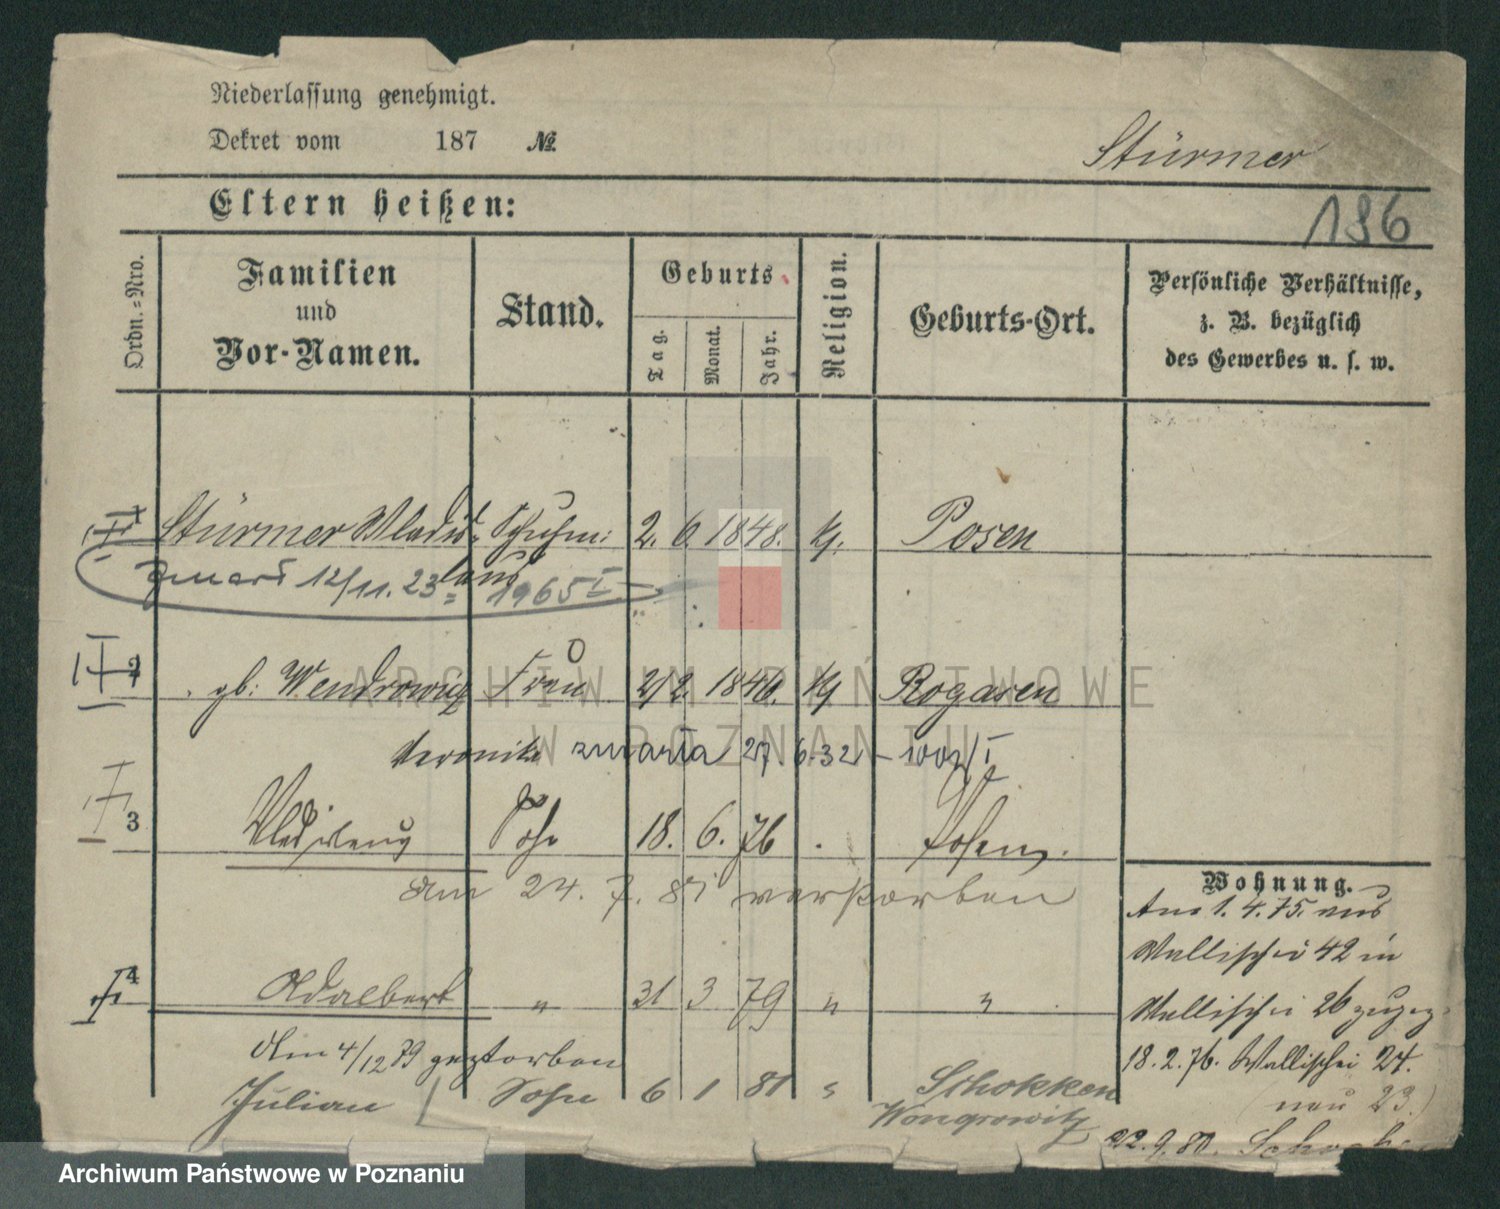 Niederlassung genehmigt.
Dekret vom 187 №
Stürmer
Eltern heißen:
186
Ordn.-Nro.
Familien und Vor-Namen.
Stand.
Geburts
Tag.
Monat.
Jahr.
Religion.
Geburts-Ort.
Persönliche Verhältnisse,
z. B. bezüglich
des Gewerbes u. s. w.
1 Stürmer Wladis- Schuhm: 2. 6. 1848. kj. Posen
laus
zmarł 12/11. 23 = 1965 I
2 gb: Wendrowicz Frau 2/2 1846. kj Rogasen
Veronika zmarła 27 6.32 - 1002/I
3 Sohn 18. 6. 76 Posen.
am 24. 7. 81 verstorben
4 Adalbert " 31 3 79 " "
Am 4/12 79 gestorben
Julian Sohn 6 1 81 Schokken
Wongrowitz
Wohnung.
Am 1. 4. 75. aus
Wallischei 42 in
Wallischei 26 zugez.
18. 2. 76. Wallischei 24.
(neu 23.)
22. 9. 80.
ARCHIWUM PAŃSTWOWE
W POZNANIU
Archiwum Państwowe w Poznaniu